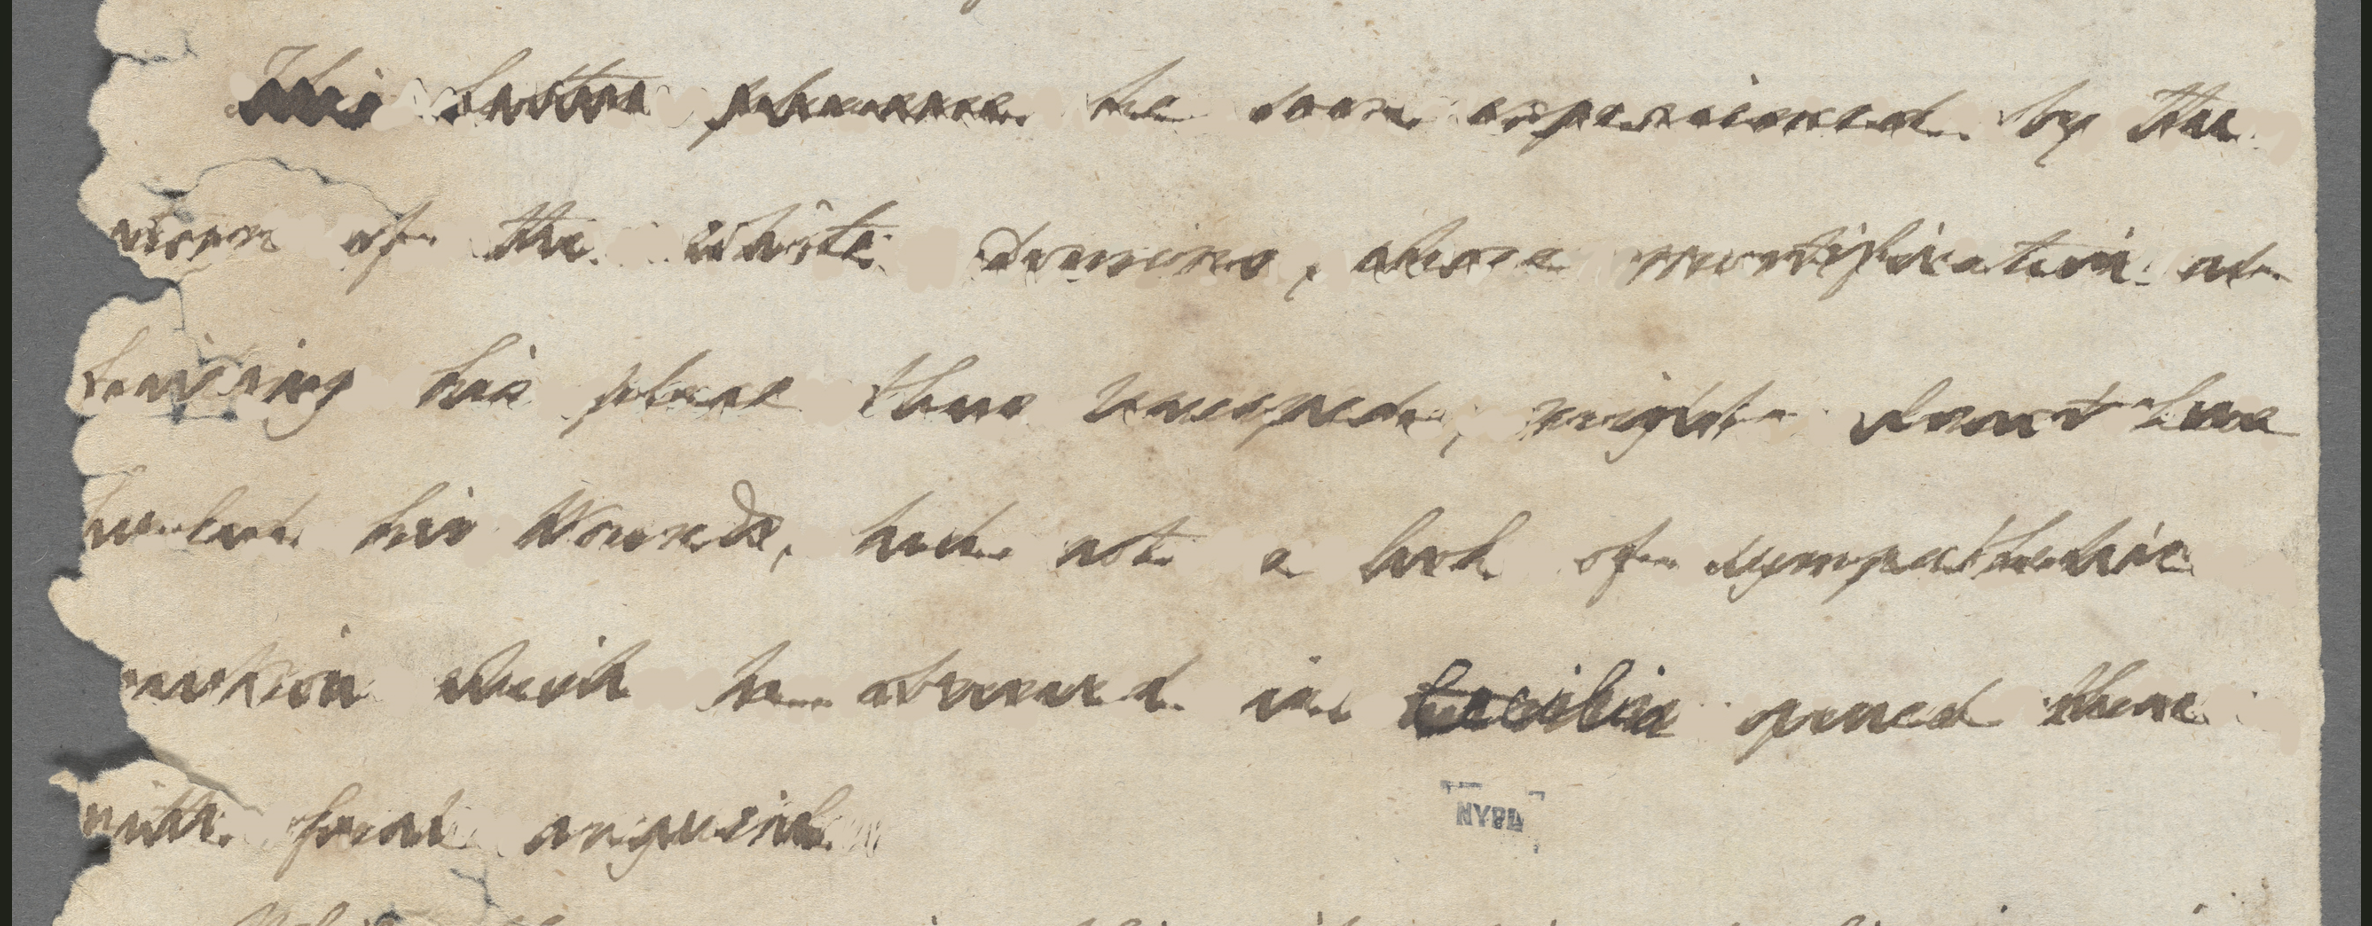 This latter pleasure he soon experienced by the
of the white domino, whose mortification at
his place thus usurped, might almost have
healed his Wounds, had not a look of sympathetic
which he observed in Cecilia opened them
with fresh anguish
NYPL